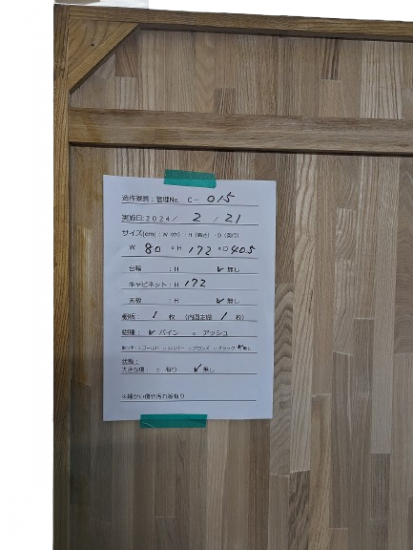 造作家具：管理No. C- 015
実施日:2024/ 2 / 21
サイズ(cm)：W(巾)×H(高さ)×D(奥行)
W 80 ×H 172 ×D 40.5
台輪 ：H レ 無し
キャビネット：H 172
天板 ：H レ 無し
棚板： 1 枚 (内固定棚 1 枚)
樹種： レ パイン ▫ アッシュ
状態：
大きな傷 ▫ 有り レ 無し
※細かい傷や汚れ等有り